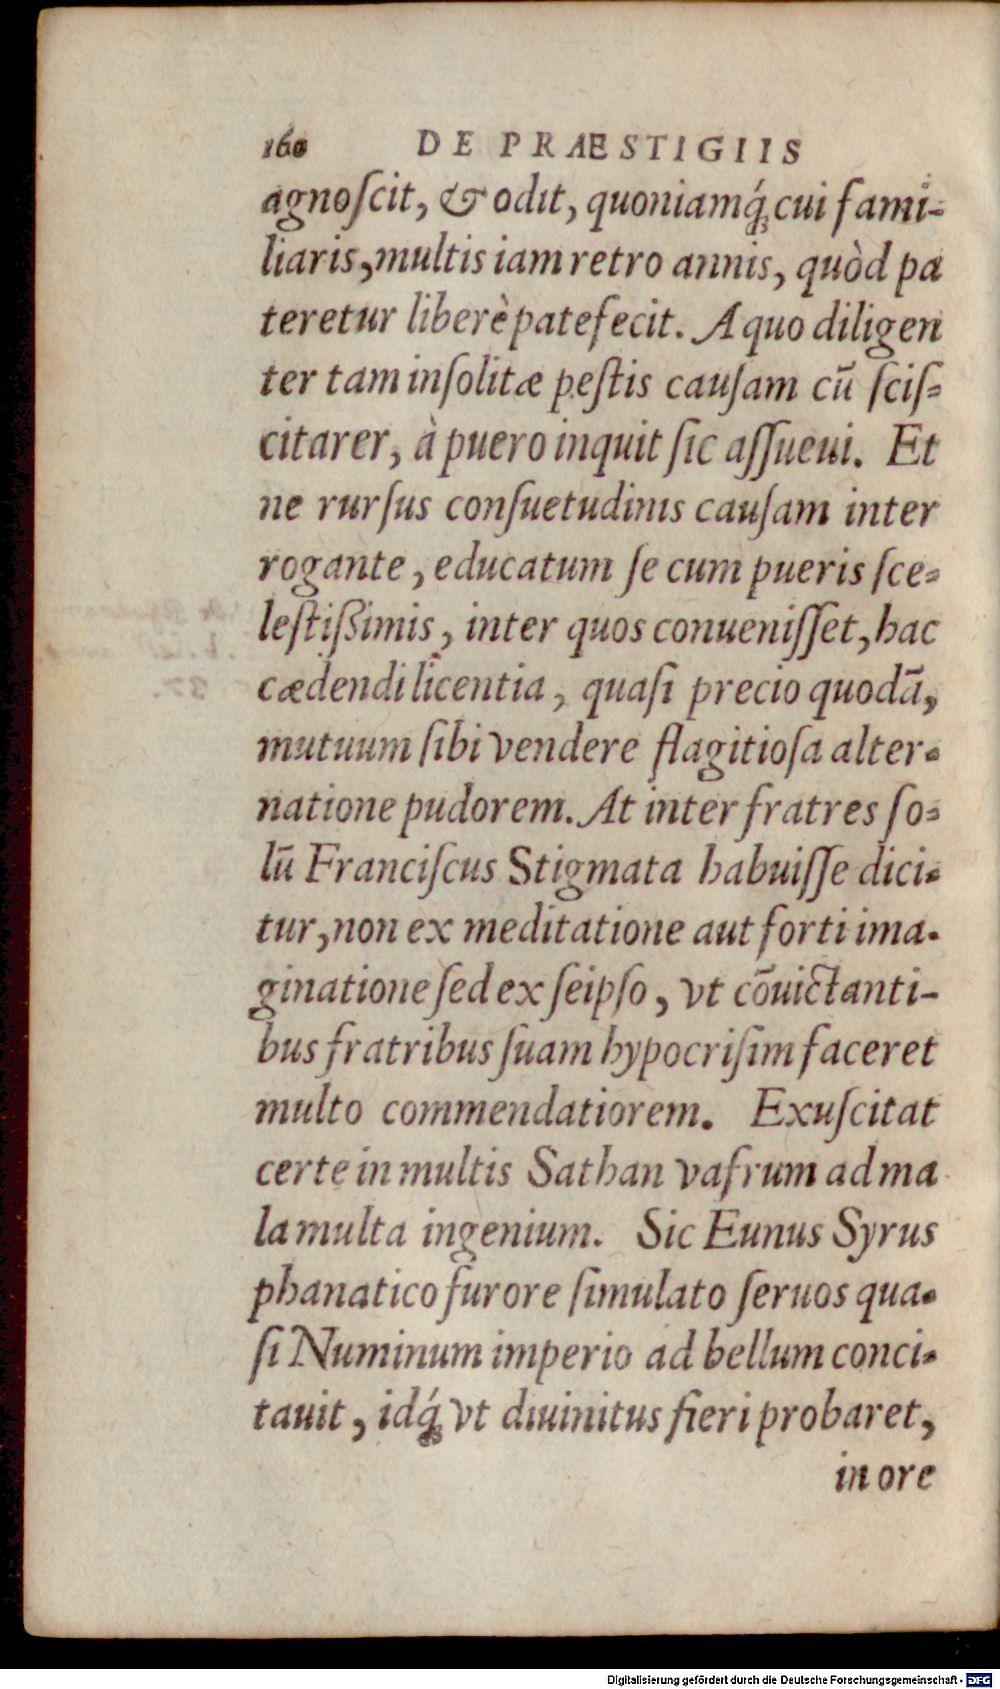 160 DE PRAESTIGIIS
agnoſcit, & odit, quoniamq́; cui fami-
liaris, multis iam retro annis, quòd pa
teretur liberè patefecit. A quo diligen
ter tam inſolitæ peſtis cauſam cũ ſciſ-
citarer, à puero inquit ſic aſſueui. Et
ne rurſus conſuetudinis cauſam inter
rogante, educatum ſe cum pueris ſce-
leſtiſsimis, inter quos conueniſſet, hac
cædendi licentia, quaſi precio quodã,
mutuum ſibi vendere flagitioſa alter-
natione pudorem. At inter fratres ſo-
lũ Franciſcus Stigmata habuiſſe dici-
tur, non ex meditatione aut forti ima-
ginatione ſed ex ſeipſo, vt cõuictanti-
bus fratribus ſuam hypocriſim faceret
multo commendatiorem. Exuſcitat
certe in multis Sathan vafrum ad ma
la multa ingenium. Sic Eunus Syrus
phanatico furore ſimulato ſeruos qua-
ſi Numinum imperio ad bellum conci-
tauit, idq́; vt diuinitus fieri probaret,
in ore
Digitalisierung gefördert durch die Deutsche Forschungsgemeinschaft - DFG